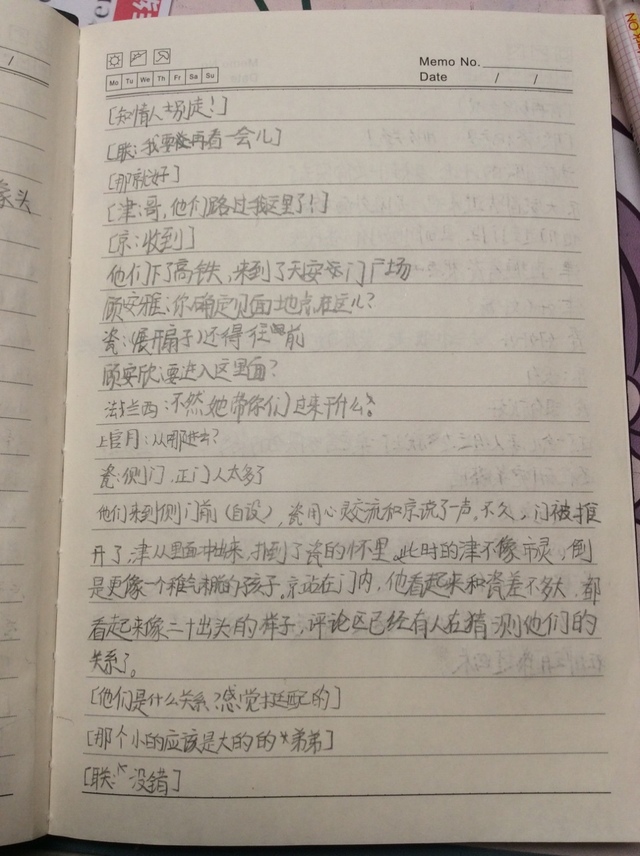 Memo No.
Mo Tu We Th Fr Sa Su
Date / /
[知情人士拐走!]
[联:我要再看一会儿]
[那就好]
[津:哥,他们路过我这里了!]
[京:收到]
他们下了高铁,来到了天安门广场
顾安雅:你确定见面地点在这儿?
瓷:(展开扇子)还得往前
顾安欣:要进入这里面?
法兰西:不然她带你们过来干什么?
上官月:从哪进去?
瓷:侧门,正门人太多了
他们来到侧门前(自设),瓷用心灵交流和京说了一声。不久,门被推
开了,津从里面冲出来,扑到了瓷的怀里。此时的津不像市灵,倒
是更像一个稚气未脱的孩子。京站在门内,他看起来和瓷差不多大,都
看起来像二十出头的样子,评论区已经有人在猜测他们的
关系了。
[他们是什么关系?感觉挺配的]
[那个小的应该是大的的弟弟]
[联:没错]
象头